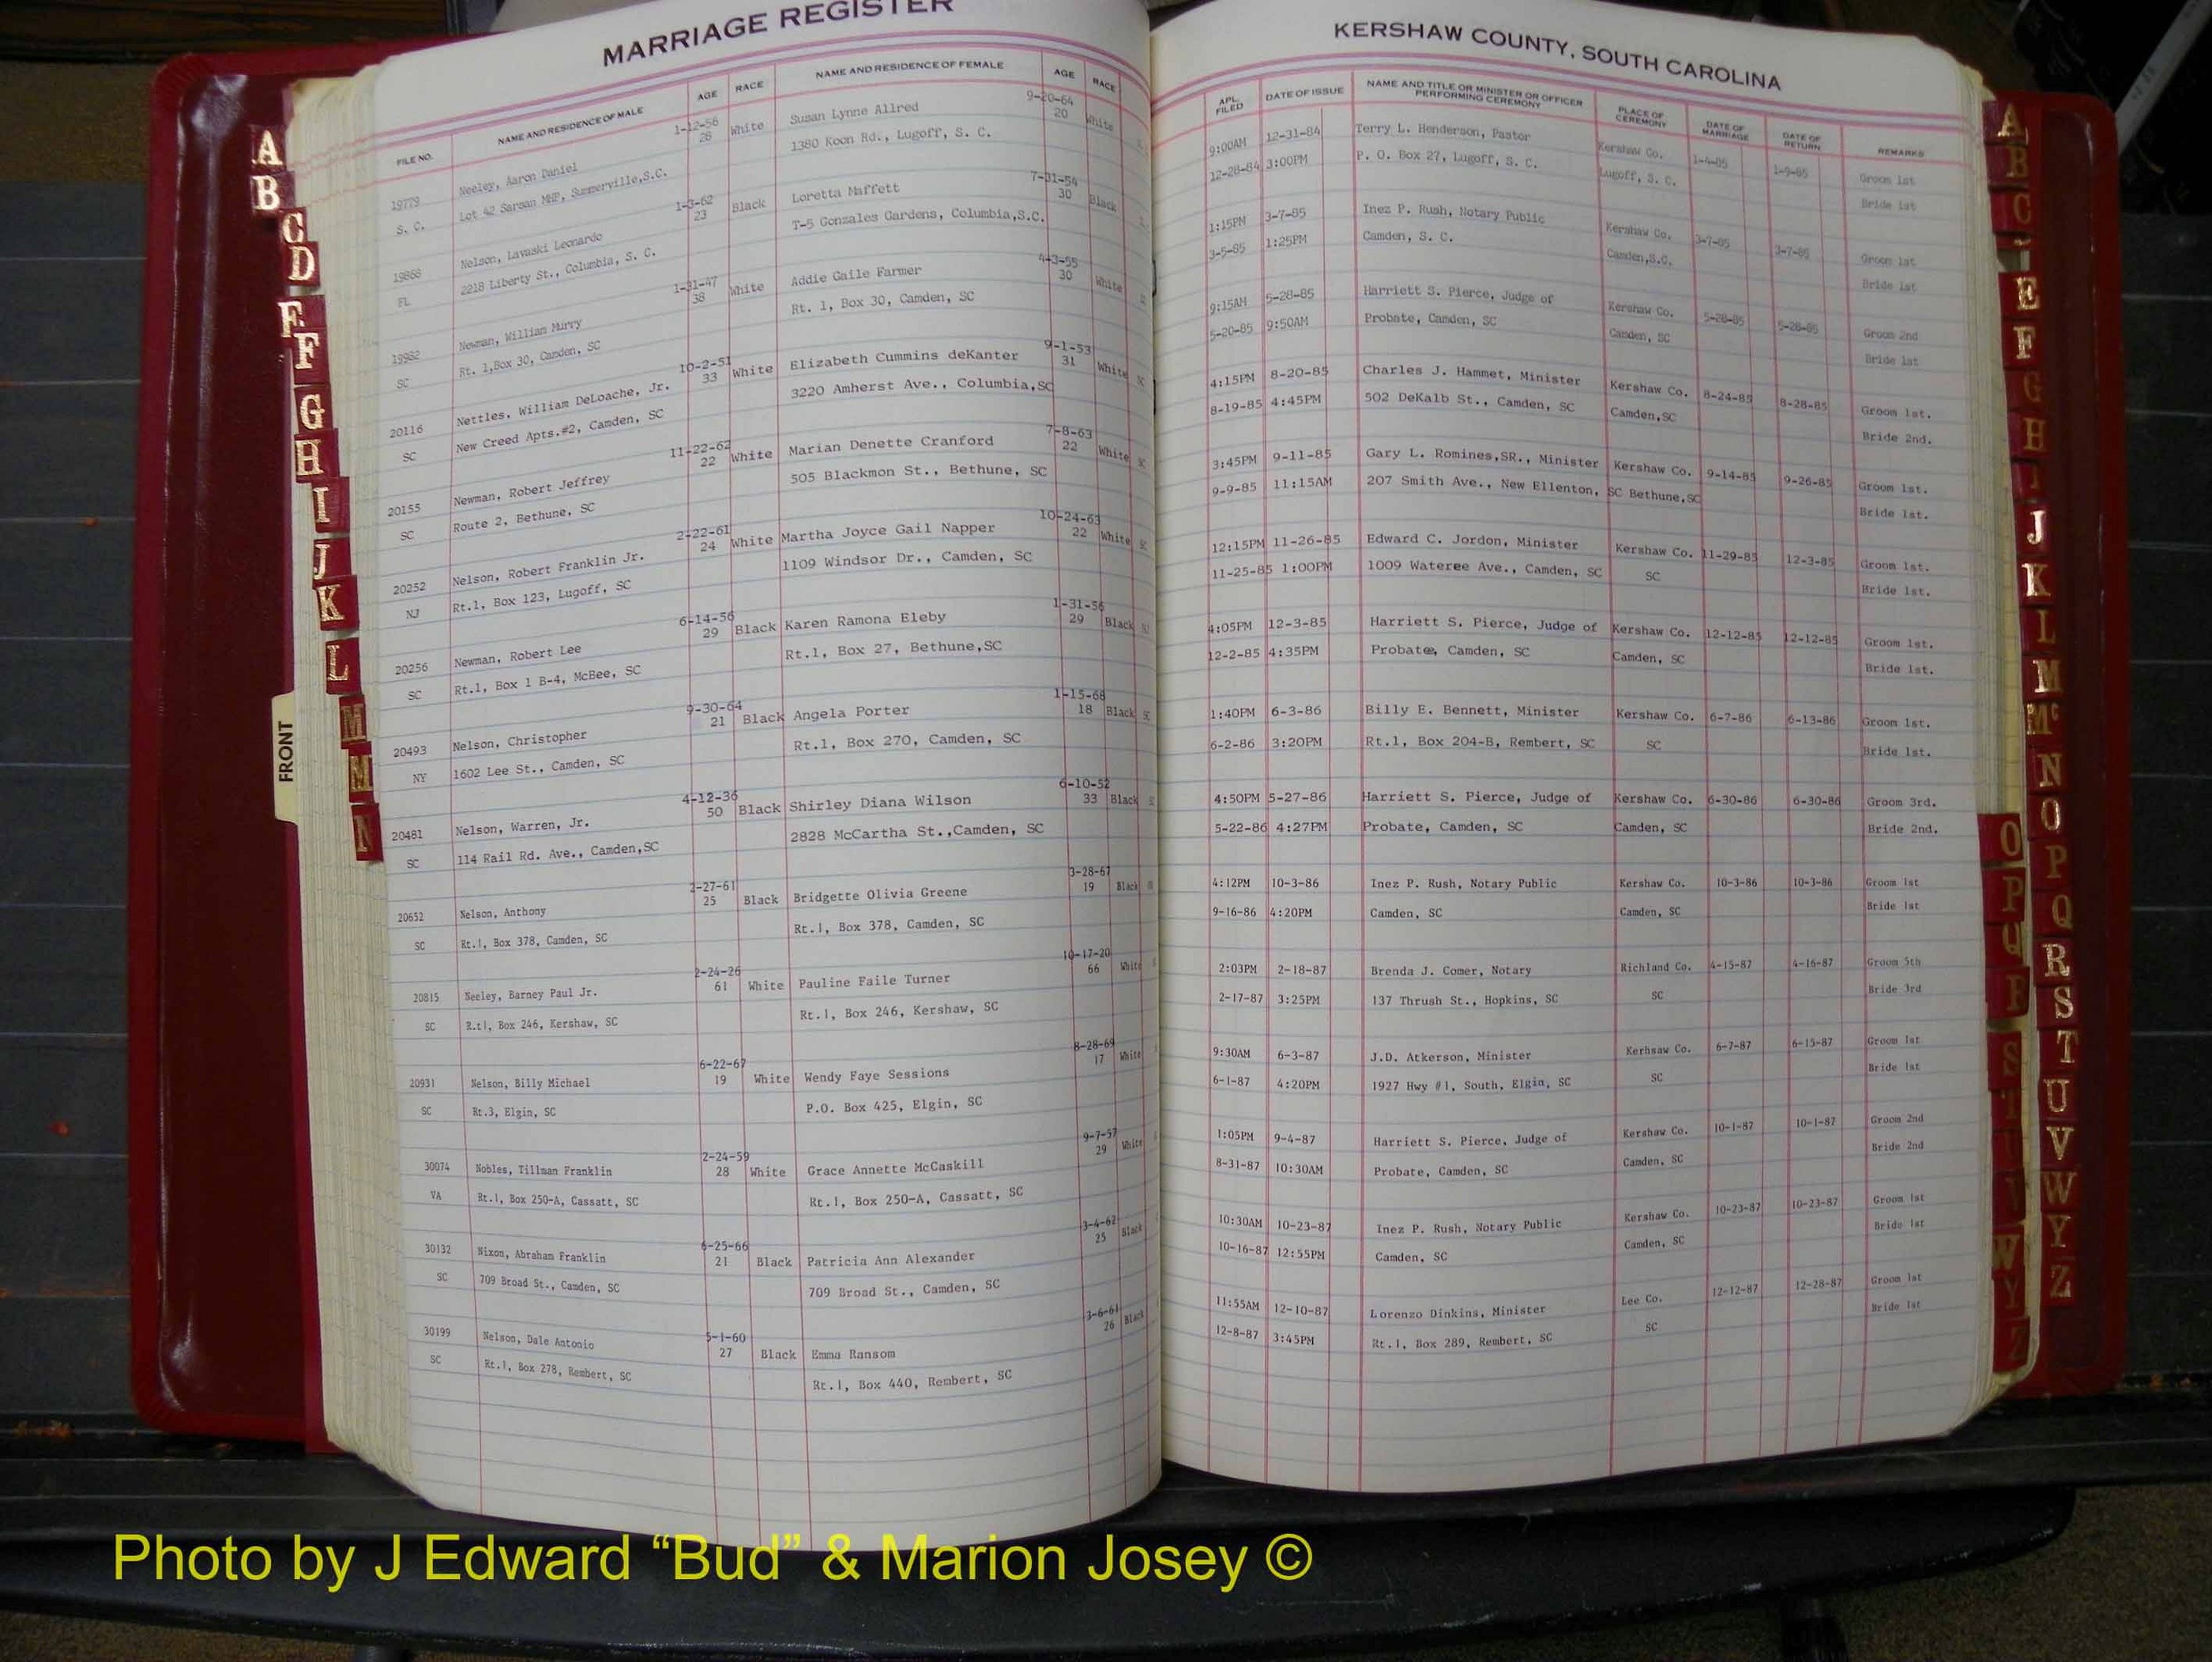 MARRIAGE REGISTER
FILE NO. NAME AND RESIDENCE OF MALE AGE RACE NAME AND RESIDENCE OF FEMALE AGE RACE
1-12-56 9-20-64
19779 Neeley, Aaron Daniel 28 White Susan Lynne Allred 20 White
S. C. Lot 42 Sarsan MHP, Summerville,S.C. 1380 Koon Rd., Lugoff, S. C.
1-3-62 7-31-54
19868 Nelson, Lavaski Leonardo 23 Black Loretta Maffett 30 Black
FL 2218 Liberty St., Columbia, S. C. T-5 Gonzales Gardens, Columbia,S.C.
1-31-47 4-3-55
19982 Newman, William Murry 38 White Addie Gaile Farmer 30 White
SC Rt. 1,Box 30, Camden, SC Rt. 1, Box 30, Camden, SC
10-2-51 9-1-53
20116 Nettles, William DeLoache, Jr. 33 White Elizabeth Cummins deKanter 31 White SC
SC New Creed Apts.#2, Camden, SC 3220 Amherst Ave., Columbia,SC
11-22-62 7-8-63
20155 Newman, Robert Jeffrey 22 White Marian Denette Cranford 22 White SC
SC Route 2, Bethune, SC 505 Blackmon St., Bethune, SC
2-22-61 10-24-63
20252 Nelson, Robert Franklin Jr. 24 White Martha Joyce Gail Napper 22 White SC
NJ Rt.1, Box 123, Lugoff, SC 1109 Windsor Dr., Camden, SC
6-14-56 1-31-56
20256 Newman, Robert Lee 29 Black Karen Ramona Eleby 29 Black
SC Rt.1, Box 1 B-4, McBee, SC Rt.1, Box 27, Bethune,SC
9-30-64 1-15-68
20493 Nelson, Christopher 21 Black Angela Porter 18 Black SC
NY 1602 Lee St., Camden, SC Rt.1, Box 270, Camden, SC
4-12-36 6-10-52
20481 Nelson, Warren, Jr. 50 Black Shirley Diana Wilson 33 Black
SC 114 Rail Rd. Ave., Camden,SC 2828 McCartha St.,Camden, SC
2-27-61 3-28-67
20652 Nelson, Anthony 25 Black Bridgette Olivia Greene 19 Black
SC Rt.1, Box 378, Camden, SC Rt.1, Box 378, Camden, SC
2-24-26 10-17-20
20815 Neeley, Barney Paul Jr. 61 White Pauline Faile Turner 66 White
SC R.t1, Box 246, Kershaw, SC Rt.1, Box 246, Kershaw, SC
6-22-67 8-28-69
20931 Nelson, Billy Michael 19 White Wendy Faye Sessions 17 White
SC Rt.3, Elgin, SC P.O. Box 425, Elgin, SC
2-24-59 9-7-57
30074 Nobles, Tillman Franklin 28 White Grace Annette McCaskill 29 White
VA Rt.1, Box 250-A, Cassatt, SC Rt.1, Box 250-A, Cassatt, SC
6-25-66 3-4-62
30132 Nixon, Abraham Franklin 21 Black Patricia Ann Alexander 25 Black
SC 709 Broad St., Camden, SC 709 Broad St., Camden, SC
5-1-60 3-6-61
30199 Nelson, Dale Antonio 27 Black Emma Ransom 26 Black
SC Rt.1, Box 278, Rembert, SC Rt.1, Box 440, Rembert, SC
KERSHAW COUNTY, SOUTH CAROLINA
APL. FILED DATE OF ISSUE NAME AND TITLE OR MINISTER OR OFFICER PERFORMING CEREMONY PLACE OF CEREMONY DATE OF MARRIAGE DATE OF RETURN REMARKS
9:00AM 12-31-84 Terry L. Henderson, Pastor Kershaw Co. 1-4-85 1-9-85 Groom 1st
12-28-84 3:00PM P. O. Box 27, Lugoff, S. C. Lugoff, S. C. Bride 1st
1:15PM 3-7-85 Inez P. Rush, Notary Public Kershaw Co. 3-7-85 3-7-85 Groom 1st
3-5-85 1:25PM Camden, S. C. Camden,S.C. Bride 1st
9:15AM 5-28-85 Harriett S. Pierce, Judge of Kershaw Co. 5-28-85 5-28-85 Groom 2nd
5-20-85 9:50AM Probate, Camden, SC Camden, SC Bride 1st
4:15PM 8-20-85 Charles J. Hammet, Minister Kershaw Co. 8-24-85 8-28-85 Groom 1st.
8-19-85 4:45PM 502 DeKalb St., Camden, SC Camden,SC Bride 2nd.
3:45PM 9-11-85 Gary L. Romines,SR., Minister Kershaw Co. 9-14-85 9-26-85 Groom 1st.
9-9-85 11:15AM 207 Smith Ave., New Ellenton, SC Bethune,SC Bride 1st.
12:15PM 11-26-85 Edward C. Jordon, Minister Kershaw Co. 11-29-85 12-3-85 Groom 1st.
11-25-85 1:00PM 1009 Wateree Ave., Camden, SC SC Bride 1st.
4:05PM 12-3-85 Harriett S. Pierce, Judge of Kershaw Co. 12-12-85 12-12-85 Groom 1st.
12-2-85 4:35PM Probate, Camden, SC Camden, SC Bride 1st.
1:40PM 6-3-86 Billy E. Bennett, Minister Kershaw Co. 6-7-86 6-13-86 Groom 1st.
6-2-86 3:20PM Rt.1, Box 204-B, Rembert, SC SC Bride 1st.
4:50PM 5-27-86 Harriett S. Pierce, Judge of Kershaw Co. 6-30-86 6-30-86 Groom 3rd.
5-22-86 4:27PM Probate, Camden, SC Camden, SC Bride 2nd.
4:12PM 10-3-86 Inez P. Rush, Notary Public Kershaw Co. 10-3-86 10-3-86 Groom 1st
9-16-86 4:20PM Camden, SC Camden, SC Bride 1st
2:03PM 2-18-87 Brenda J. Comer, Notary Richland Co. 4-15-87 4-16-87 Groom 5th
2-17-87 3:25PM 137 Thrush St., Hopkins, SC SC Bride 3rd
9:30AM 6-3-87 J.D. Atkerson, Minister Kerhsaw Co. 6-7-87 6-15-87 Groom 1st
6-1-87 4:20PM 1927 Hwy #1, South, Elgin, SC SC Bride 1st
1:05PM 9-4-87 Harriett S. Pierce, Judge of Kershaw Co. 10-1-87 10-1-87 Groom 2nd
8-31-87 10:30AM Probate, Camden, SC Camden, SC Bride 2nd
10:30AM 10-23-87 Inez P. Rush, Notary Public Kershaw Co. 10-23-87 10-23-87 Groom 1st
10-16-87 12:55PM Camden, SC Camden, SC Bride 1st
11:55AM 12-10-87 Lorenzo Dinkins, Minister Lee Co. 12-12-87 12-28-87 Groom 1st
12-8-87 3:45PM Rt.1, Box 289, Rembert, SC SC Bride 1st
A
B
C
D
E
F
G
H
I
J
K
L
M
M
N
FRONT
A
B
C
E
F
G
H
I
J
K
L
M
Mc
N
O
P
Q
R
S
T
U
V
W
Y
Z
O
P
Q
R
S
T
U
V
W
Y
Z
Photo by J Edward “Bud” & Marion Josey ©